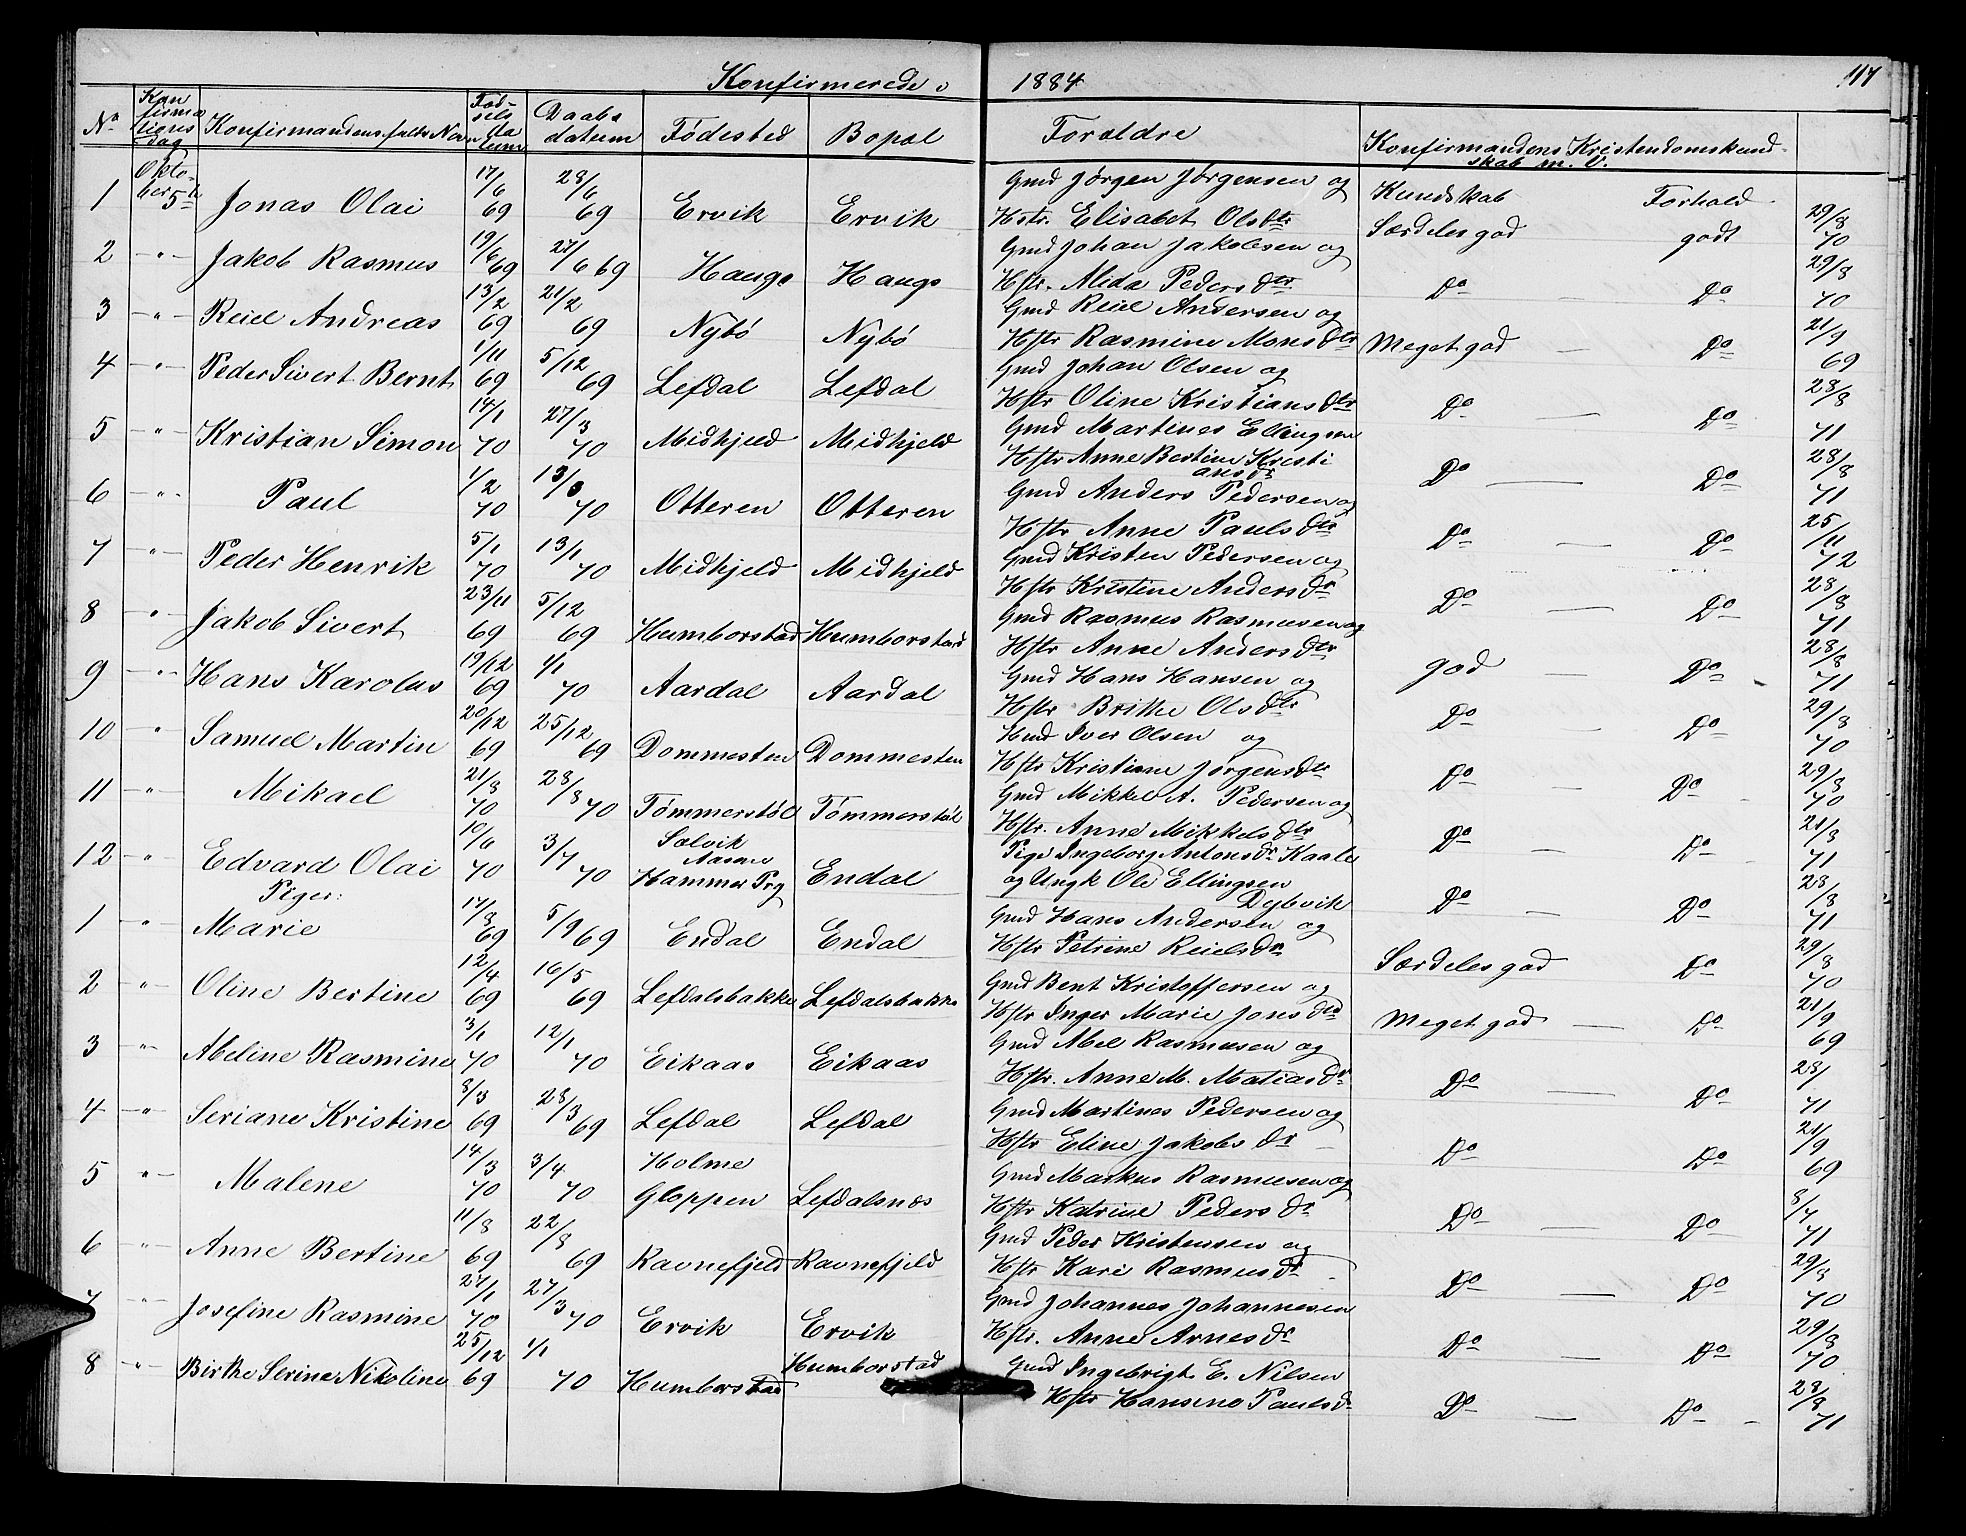 Konfirmerede i 1884 117
No Konfirmationsdag Konfirmandens fulde Navn Fødselsdatum Daabsdatum Fødested Bopæl Forældre Konfirmandens Kristendomskundskab m. v.
Oktober Kundskab Forhold
1 5te Jonas Olai 17/6 69 28/6 69 Ervik Ervik Gmd Jørgen Jørgensen og Særdeles god godt 29/8 70
Hstr. Elisabet Olsdtr
2 -"- Jakob Rasmus 19/6 69 27/6 69 Hauge Hauge Gmd Johan Jakobsen og Do — Do 29/8 70
Hstr. Alida Pedersdtr
3 -"- Reiel Andreas 13/2 69 21/2 69 Nybø Nybø Gmd Reiel Andersen og Meget god — Do 21/9 69
Hstr Rasmine Monsdtr
4 -"- Peder Sivert Bernt 1/11 69 5/12 69 Lefdal Lefdal Gmd Johan Olsen og Do — Do 28/8 71
Hstr Oline Kristiansdtr
5 -"- Kristian Simon 14/1 70 27/3 70 Midhjeld Midhjeld Gmd Martines Ellingsen Do — Do 28/8 71
Hstr Anne Bertine Kristi
ansdr
6 -"- Paul 1/2 70 13/3 70 Otteren Otteren Gmd Anders Pedersen og Do — Do 25/11 72
Hstr Anne Paulsdtr
7 -"- Peder Henrik 5/1 70 13/1 70 Midhjeld Midhjeld Gmd Kristen Pedersen og Do — Do 28/8 71
Hstr Kristine Andersdr
8 " Jakob Sivert 23/11 69 5/12 69 Humborstad Humborstad Gmd Rasmus Rasmusen og god — Do 28/8 71
Hstr Anne Andersdtr
9 -"- Hans Karolus 19/12 69 1/1 70 Aardal Aardal Gmd Hans Hansen og Do Do 29/8 70
Hstr Brithe Olsdtr
10 " Samuel Martin 20/12 69 25/12 69 Dommesten Dommesten Hmd Iver Olsen og Do — Do 29/8 70
Hstr Kristiane Jørgensdtr
11 -"- Mikael 21/3 70 28/3 70 Tømmerstøl Tømmerstøl Gmd Mikkel A. Pedersen og Do — Do 21/8 71
Hstr. Anne Mikkelsdtr
12 -"- Edvard Olai 10/6 70 3/7 70 Solvik Hammer Prg Endal Pige Ingeborg Antonsdr Kaale Do — Do 28/8 71
og Ungk Ole Ellingsen
Dybvik
Piger:
1 " Marie 17/8 69 5/9 69 Endal Endal Gmd Hans Andersen og Særdeles god Do 29/8 70
Hstr Petrine Reielsdr
2 -"- Oline Bertine 12/4 69 16/5 69 Lefdalsbakke Lefdalsbakke Gmd Bent Kristoffersen og Meget god — Do 21/9 69
Hstr Inger Marie Jonsdtr
3 -"- Abeline Rasmine 3/1 70 12/1 70 Eikaas Eikaas Gmd Abel Rasmusen og Do — Do 28/ 71
Hstr. Anne M. Matiasdr
4 -"- Seriane Kristine 8/3 69 28/3 69 Lefdal Lefdal Gmd Martines Pedersen og Do Do 21/9 69
Hstr Eline Jakobsdr
5 -"- Malene 14/3 70 3/4 70 Holme Gloppen Lefdalsnæs Gmd Markus Rasmusen og Do — Do 8/7 71
Hstr Katrine Pedersdr
6 -"- Anne Bertine 11/8 69 22/8 69 Ravnefjeld Ravnefjeld Gmd Peder Kristensen og Do — Do 29/8 70
Hstr Kari Rasmusdr
7 -"- Josefine Rasmine 27/1 70 27/3 70 Ervik Ervik Gmd Johannes Johannesen Do — Do 29/8 70
Hstr. Anne Arnesdr
8 -"- Birthe Serine Nikoline 25/12 69 1/1 70 Humborstad Humborstad Gmd Ingebrigt E. Nilsen Do — Do 28/8 71
Hstr Hansine Paulsdr